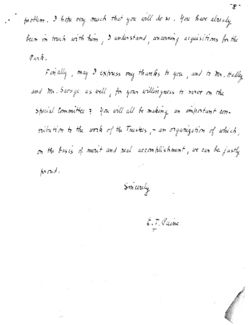 problem. I hope very much that you will do so. You have already
been in touch with him, I understand, concerning acquisitions for the
Park.
Finally, may I express my thanks to you, and to Mr.
and Mr. George as well, for your willingness to serve on the
special Committee? You will all be making an important con-
tribution to the work of the Trustees, - an organization of which,
on the bases of merit and real accomplishment, we can be justly
proud.
Sincerely
E. T. Paine